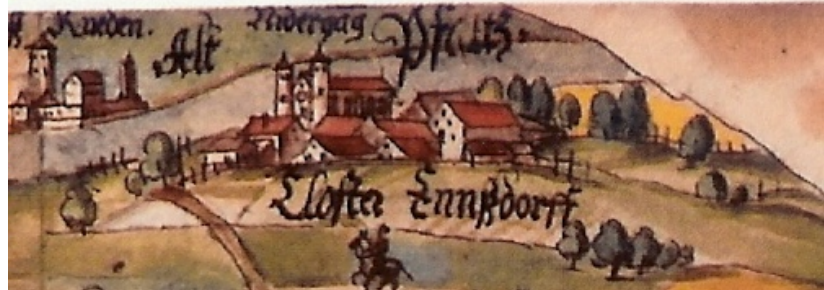 Rueden. Nidergäg
Alt Pfaltz.
Closter Ennßdorff